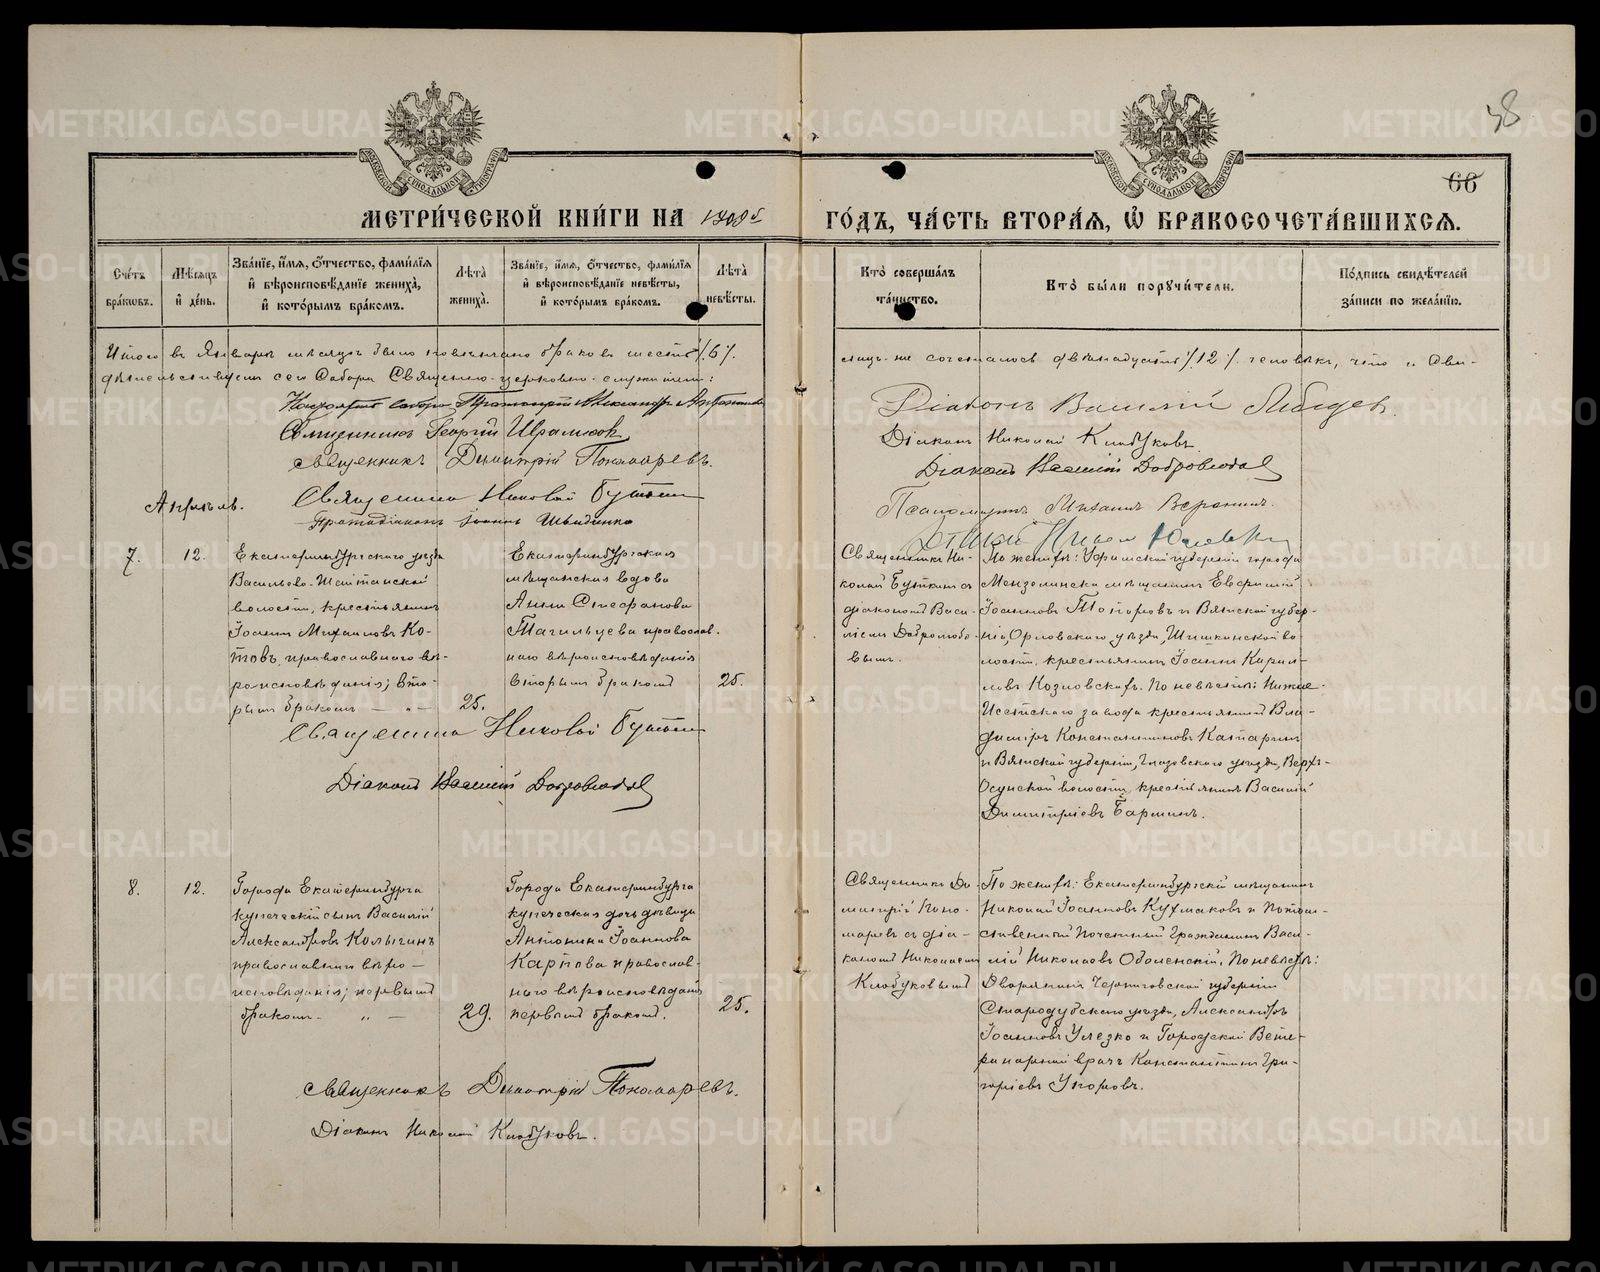 38
66
МОСКОВСКОЙ СѴНОДАЛЬНОЙ ТИПОГРАФІИ
МОСКОВСКОЙ СѴНОДАЛЬНОЙ ТИПОГРАФІИ
МЕТРИ́ЧЕСКОЙ КНИ́ГИ НА 1908й ГО́ДЪ, ЧА́СТЬ ВТОРА́Я, Ѽ БРАКОСОЧЕТА́ВШИХСЯ.
Сче́тъ бра́ковъ.
Мѣ́сяцъ и҆ де́нь.
Зва́нїе, и҆́мя, ѻ҆́тчество, фами́лїя и҆ вѣроисповѣ́данїе жениха̀, и҆ кото́рымъ бра́комъ.
Лѣ́та жениха̀.
Зва́нїе, и҆́мя, ѻ҆́тчество, фами́лїя и҆ вѣроисповѣ́данїе невѣ́сты, и҆ кото́рымъ бра́комъ.
Лѣ́та невѣ́сты.
Кто̀ соверша́лъ та́инство.
Кто̀ бы́ли поручи́тели.
По́дпись свидѣ́телей за́писи по жела́нїю.
Итого въ Январѣ мѣсяцѣ было повѣнчано браковъ шесть /.6/.
лицъ же сочеталось двѣнадцать /.12/. человѣкъ, что и Сви-
дѣтельствуемъ сего Собора Священно-церковно-служители:
Настоятель Собора Протоіерей Александръ
Священникъ Георгій
Священникъ Димитрій Пономаревъ.
Священникъ Николай Буткинъ
Протодіаконъ Іоаннъ Швиденко
Діаконъ Василій Лебедев.
Діаконъ Николай Клобуковъ
Діаконъ Василій Добролюбов
Псаломщикъ Михаилъ
Апрѣль.
7.
12.
Екатеринбургскаго уѣзда
Васильево-Шайтанской
волости, крестьянинъ
Іоаннъ Михаиловъ Ко-
товъ, православнаго вѣ-
роисповѣданія; вто-
рымъ бракомъ — „ —
25.
Екатеринбургская
мѣщанская вдова
Анна Стефанова
Тагильцева православ-
наго вѣроисповѣданія
вторымъ бракомъ
25.
Священникъ Ни-
колай Буткинъ съ
діакономъ Васи-
ліемъ Добролюбо-
вымъ.
По женихѣ: Уфимской губерніи города
Мензелинска мѣщанинъ Евфимій
Іоанновъ Топорковъ и Вятской губер-
ніи, Орловскаго уѣзда, Шишкинской во-
лости, крестьянинъ Іоаннъ Кирил-
ловъ Козловскихъ. По невѣстѣ: Нижне-
Исетскаго завода крестьянинъ Вла-
диміръ Константиновъ Катаринъ
и Вятской губерніи, Глазовскаго уѣзда, Верхо-
сунской волости, крестьянинъ Василій
Димитріевъ Барминъ.
Священникъ Николай Буткинъ
Діаконъ Василій Добролюбов
8.
12.
Города Екатеринбурга
купеческій сынъ Василій
Александровъ Колыгинъ
православнаго вѣро-
исповѣданія; первымъ
бракомъ. „ —
29.
Города Екатеринбурга
купеческая дочь дѣвица
Антонина Іоаннова
Карпова православ-
наго вѣроисповѣданія
первымъ бракомъ.
25.
Священникъ Ди-
митрій Поно-
маревъ съ діа-
кономъ Николаемъ
Клобуковымъ
По женихѣ: Екатеринбургскій мѣщанинъ
Николай Іоанновъ Кухмаковъ и Потом-
ственный Почетный Гражданинъ Васи-
лій Николаевъ Оболенскій. По невѣстѣ:
Дворянинъ Черниговской губерніи
Стародубскаго уѣзда, Александръ
Іоанновъ Улезко и Городской Вете-
ринарный врачъ Константинъ Гри-
горіевъ Упоровъ.
Священникъ Димитрій Пономаревъ.
Діаконъ Николай Клобуковъ.
METRIKI.GASO-URAL.RU